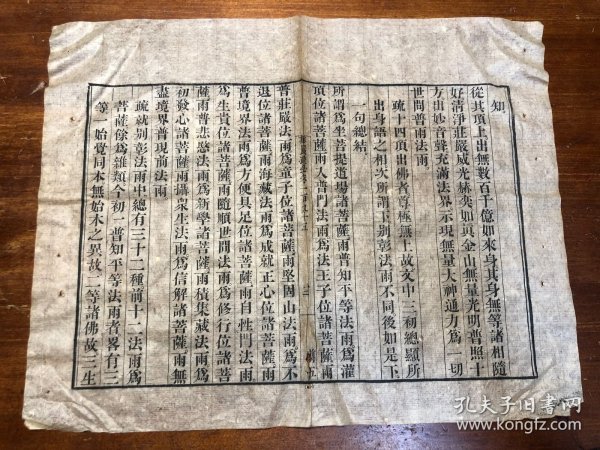 知
從其頂上出無數百千億如來身其身無等諸相隨
好清淨莊嚴威光赫奕如真金山無量光明普照十
方出妙音聲充滿法界示現無量大神通力爲一切
世間普雨法雨
疏十四頂出佛者尊極無上故文中三初總顯所
出身語之相次所謂下別彰法雨不同後如是下
一句總結
所謂爲坐菩提道場諸菩薩雨普知平等法雨爲灌
頂位諸菩薩雨入普門法雨爲法王子位諸菩薩雨
普莊嚴法雨爲童子位諸菩薩雨堅固山法雨爲不
退位諸菩薩雨海藏法雨爲成就正心位諸菩薩雨
普境界法雨爲方便具足位諸菩薩雨自性門法雨
爲生貴位諸菩薩雨隨順世間法雨爲修行位諸菩
薩雨普悲愍法雨爲新學諸菩薩雨積集藏法雨爲
初發心諸菩薩雨攝衆生法雨爲信解諸菩薩雨無
盡境界普現前法雨
疏就別彰法雨中總有三十二種前十二法雨爲
菩薩餘爲雜類今初一普知平等法雨者畧有三
等一始覺同本無始本之異故二等諸佛故三生
孔夫子旧书网
www.kongfz.com